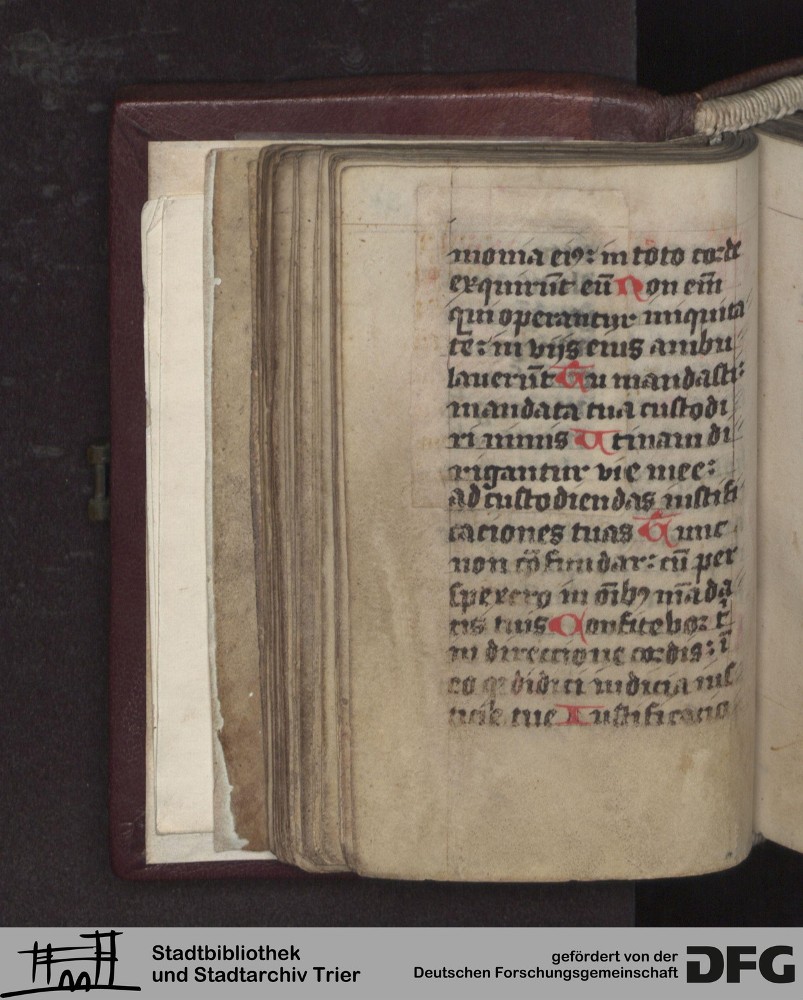 monia ei9: in toto corde
exquirūt eū Non em̄
qui operantur iniquita
tē: in vijs eius ambu
lauerūt Tu mandasti:
mandata tua custodi
ri nimis Utinam di
rigantur vie mee:
ad custodiendas iustifi
caciones tuas Tunc
non cōfundar: cū per
spexero in oīb9 mādа
tis tuis Confitebor t̄
in direccione cordis: ī
eo didici iudicia ius
ticie tue Iustificacio
Stadtbibliothek
und Stadtarchiv Trier
gefördert von der
Deutschen Forschungsgemeinschaft
DFG